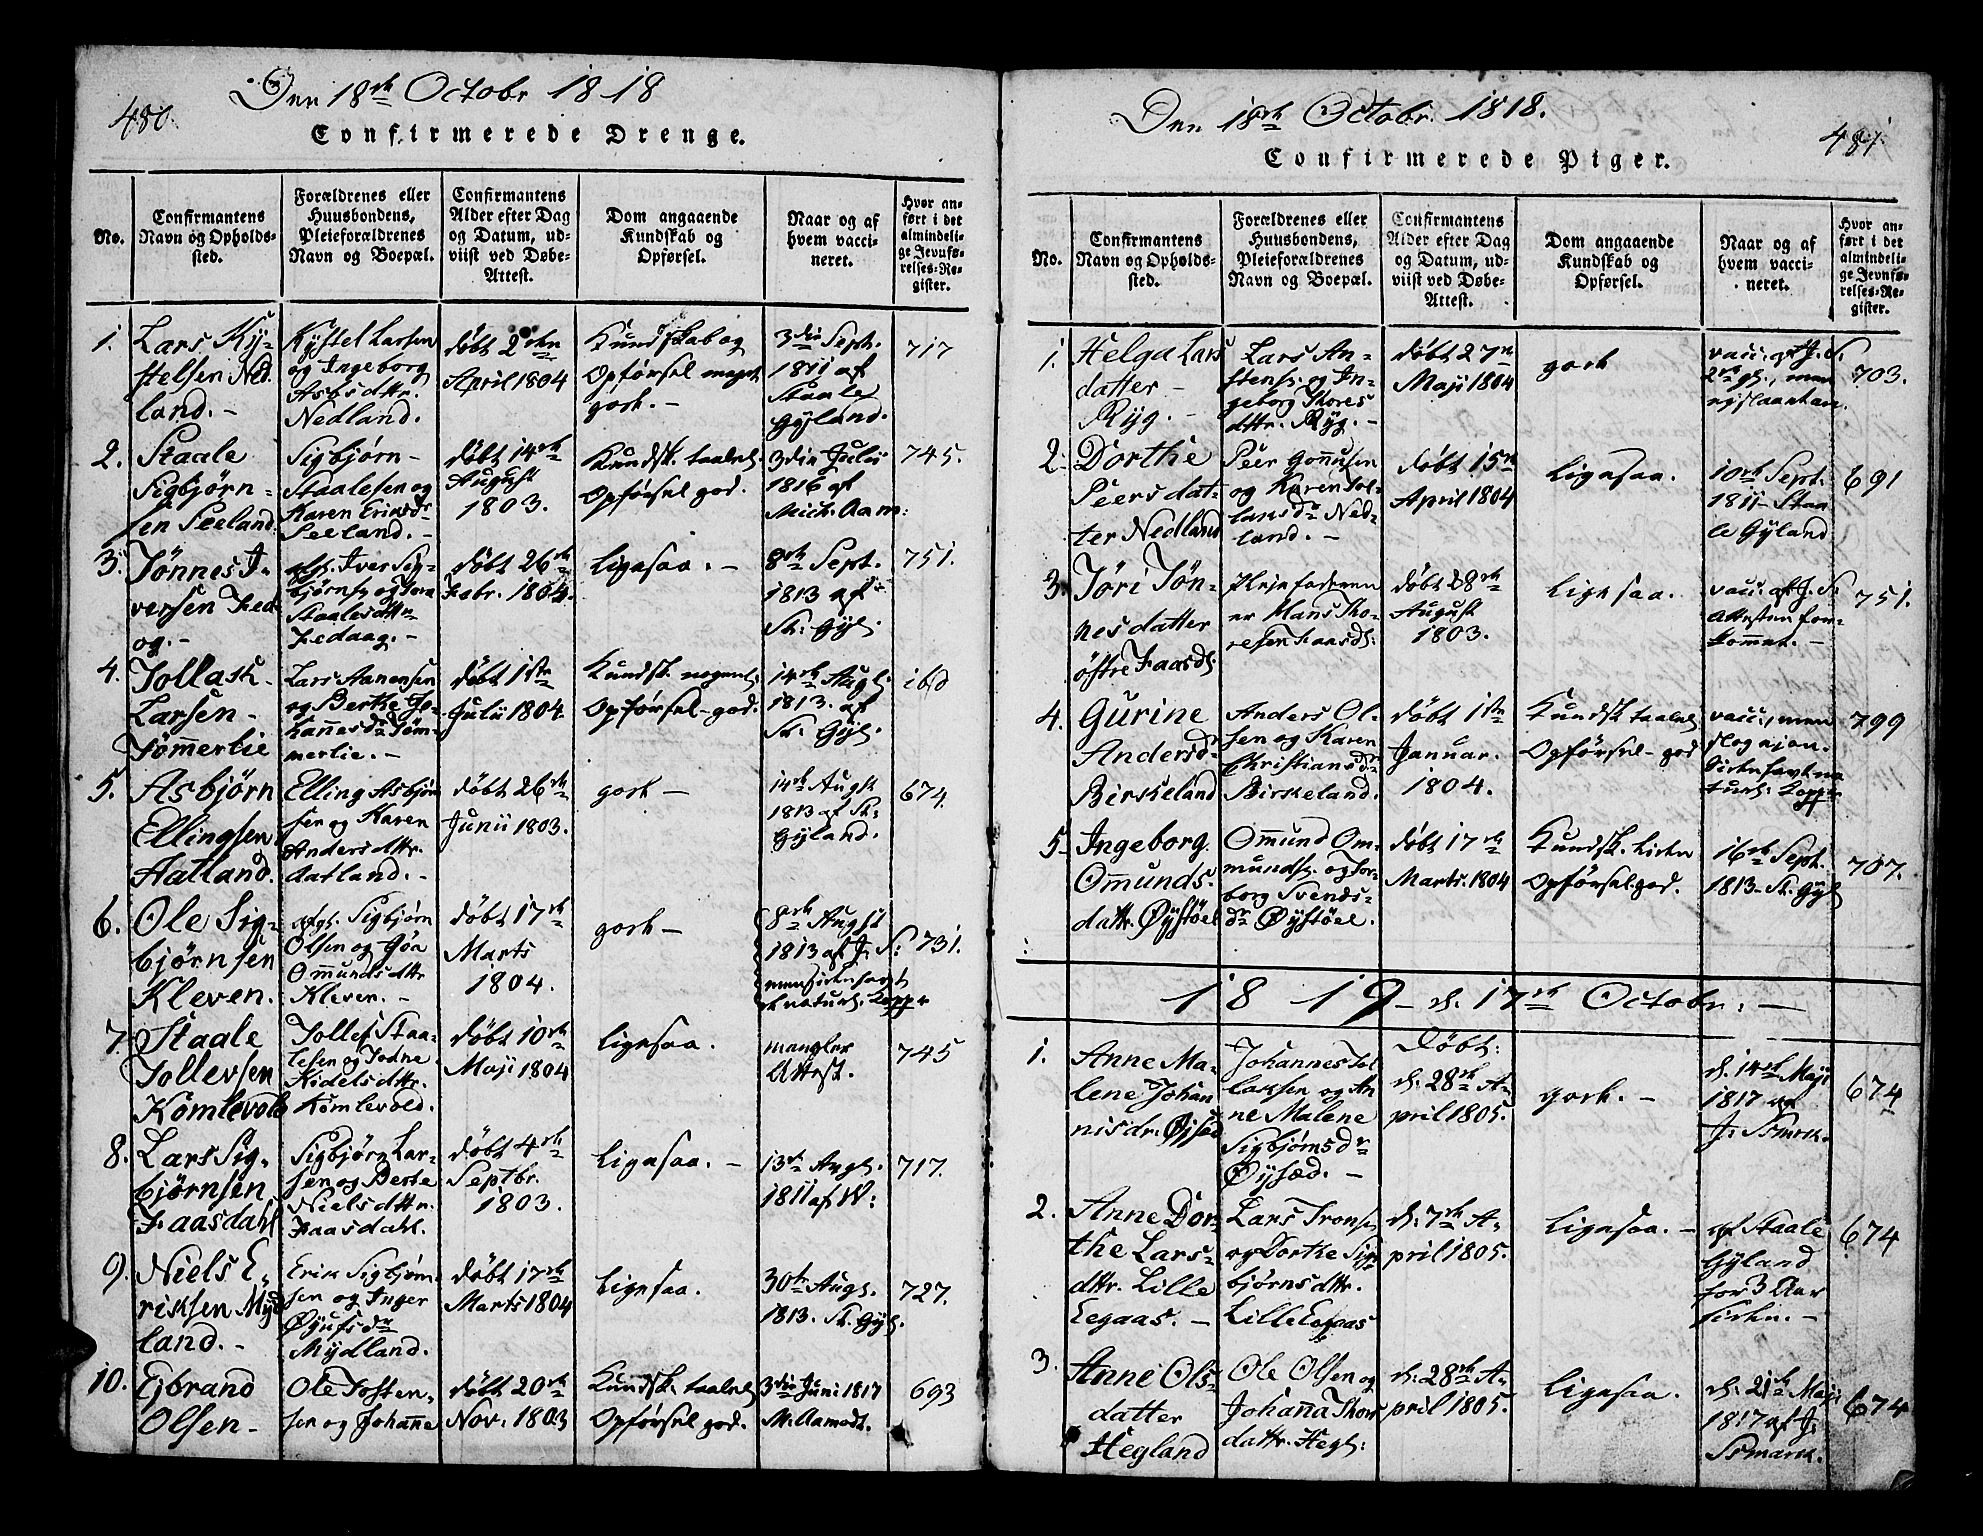 480.
Den 18de Octobr 1818
Confirmerede Drenge.
No.
Confirmantens
Navn og Opholds-
sted.
Forældrenes eller
Huusbondens,
Pleieforældrenes
Navn og Boepæl.
Confirmantens
Alder efter Dag
og Datum, ud-
viist ved Døbe-
Attest.
Dom angaaende
Kundskab og
Opførsel.
Naar og af
hvem vacci-
neret.
Hvor an-
ført i det
almindeli-
ge Jevnfø-
relses-Re-
gister.
1.
Lars Ky-
stelsen Ned-
land. -
Kystel Larsen
og Ingeborg
Asbs dttr.
Nedland.
døbt 2den
April 1804
Kundskab og
Opførsel meget
godt. -
3die Sept.
1811 af
Staale
Gyland.
717
2.
Staale
Sigbjørn-
sen Seeland.
Sigbjørn
Staalesen og
Karen Eriksdr
Seeland. -
døbt 14de
August
1803.
Kundsk. taalel.
Opførsel god.
3die Julii
1816 af
Mich. Aam:
745.
3.
Tønnes I-
versen Fed-
og. -
Iver Sig-
bjørns og
Staalesdttr
Fedaag. -
døbt 26de
Febr. 1804.
Ligesaa. -
8de Sept.
1813 af
St: Gyl:
751.
4.
Tollach
Larsen -
Tømmerlie
Lars Aanensen
og Berthe Jo-
hannesdr Tøm-
merlie. -
døbt 1ste
Julii 1804.
Kundsk. nogenl:
Opførsel - god.
14de Augl:
1813. af
St: Gyl:
ibd
5.
Asbjørn
Ellingsen
Aatland.
Elling Asbjørn
sen og Karen
Andersdttr.
Aatland. -
døbt 26de
Junii 1803.
godt -
14de Augst
1813 af St:
Gyland.
674.
6.
Ole Sig-
bjørnsen
Kleven.
afg. Sigbjørn
Olsen og Gøa
Ommundsdttr
Kleven. -
døbt 17de
Marts
1804.
godt -
8de Augst
1813 af J. S:
731.
7.
Staale
Tollevsen
Kømlevold
Tollef Staa-
lesen og Jodne
Kidelsdttr.
Kømlevold.
døbt 10de
Maji 1804
Ligesaa.
mangler
Attest.
745
8.
Lars Sig-
bjørnsen
Faasdahl
Sigbjørn Lar-
sen og Berte
Nielsdttr.
Faasdahl.
døbt 4de
Septbr.
1803.
Ligesaa. -
13de Augl.
1811 af W:
717.
9.
Niels E-
riksen Myd-
land. -
Erik Sigbjørn-
sen og Inger
Øjufsdr
Mydland.
døbt 17de
Marts 1804
Ligesaa.
30te Augl.
1813. St. Gyl.
727.
10.
Ejbrand
Olsen -
Ole Tosten-
sen og Johanne
døbt 20de
Nov. 1803
Kundsk. taalel
Opførsel god.
3die Juni 1817
M. Aamodt.
693
481
Den 18de Octobr. 1818.
Confirmerede Piger.
No.
Confirmantens
Navn og Opholds-
sted.
Forældrenes eller
Huusbondens,
Pleieforældrenes
Navn og Boepæl.
Confirmantens
Alder efter Dag
og Datum, ud-
viist ved Døbe-
Attest.
Dom angaaende
Kundskab og
Opførsel.
Naar og af
hvem vacci-
neret.
Hvor an-
ført i det
almindeli-
ge Jevnfø-
relses-Re-
gister.
1.
Helga Lars
datter -
Ryg. -
Lars An-
stens: og In-
geborg Thores
dttr. Ryg. -
døbt 27de
Maji 1804
godt
vacc: af J. S.
703.
2.
Dorthe
Peersdat-
ter Nedland
Peer Gomusen
og Karen Tol-
lansdr Ned-
land. -
døbt 15de
April 1804
Ligesaa.
10de Sept.
1811 - Staa-
le Gyland
691
3.
Tøri Tøn-
nesdatter
østre Faasdl:
Pleiefaderen
er Hans Tho-
resen Faasdl:
døbt 28de
August
1803.
Ligesaa.
vacc. af J. S:
Attesten for-
kommet. -
751.
4.
Gurine
Andersdr
Birkeland
Anders Ol-
sen og Karen
Christiansdr
Birkeland.
døbt 1ste
Januar.
1804.
Kundsk taalel
Opførsel - god
vacc:, men
799
5.
Ingeborg
Ommunds-
dattr. Øystøel
Ommund Om-
munds. og Tor-
borg Svends-
dr Øystøel.
døbt 17de
Marts. 1804
Kundsk. liden
Opførsel god.
16de Sept.
1813 - St. Gyl
707.
1819 - d. 17de Octobr: -
1.
Anne Ma-
lene Johan
nisdr. Øjsæd
Johannes Tol
laksen og An-
ne Malene
Sigbjørnsdr
Øysæd. -
Døbt:
d. 28de A-
pril 1805.
godt. -
d. 14de Maji
1817 af
J: Ssmark.
674
2.
Anne Dor-
the Lars-
dttr. Lille
Eegaas. -
Lars Trons
og Dorthe Sig-
bjørnsdttr.
Lille Eegaas
d. 7de A-
pril 1805.
Ligesaa. -
af Staale
Gyland
for 3 Aar
siden. -
674
3.
Anne Ols-
datter
Hegland
Ole Olsen og
Johanna Thors
dattr. Hegl:
d. 28de A-
pril 1805.
Ligesaa.
d. 21de Maji
1817 af J:
Ssmark.
674